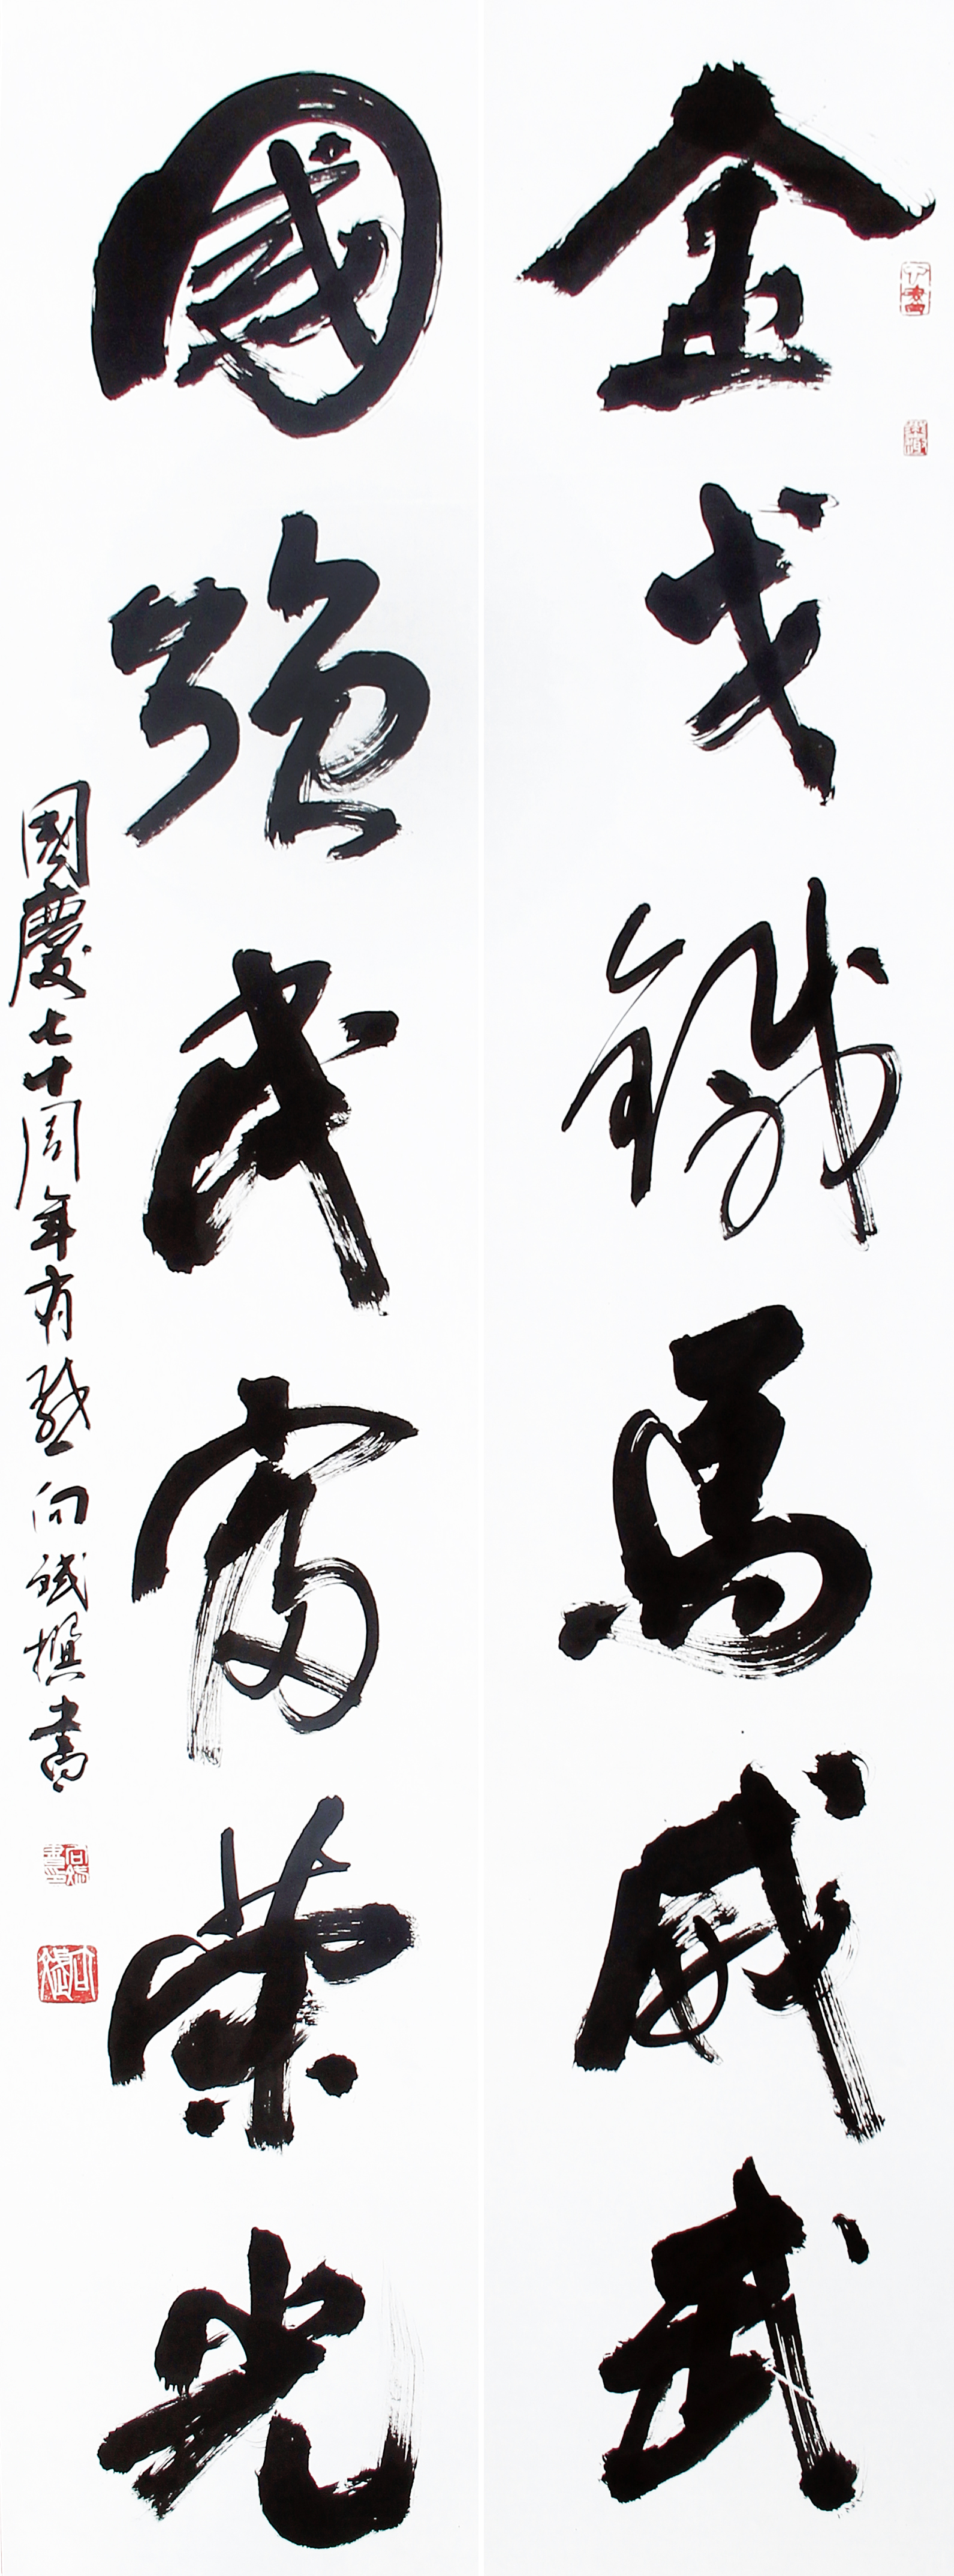 金戈鐵馬威武
國強民富榮光
國慶七十周年有感向斌撰書